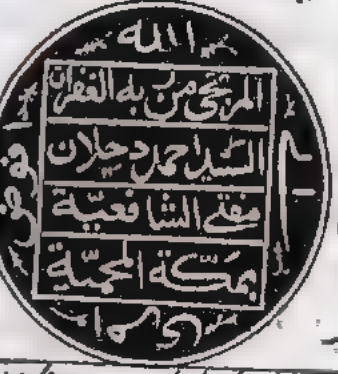 الله
المرتجى من ربه الغفران
السيد احمد دحلان
مفتي الشافعيّة
بمكّة المحميّة
وافوض
امرى
الى